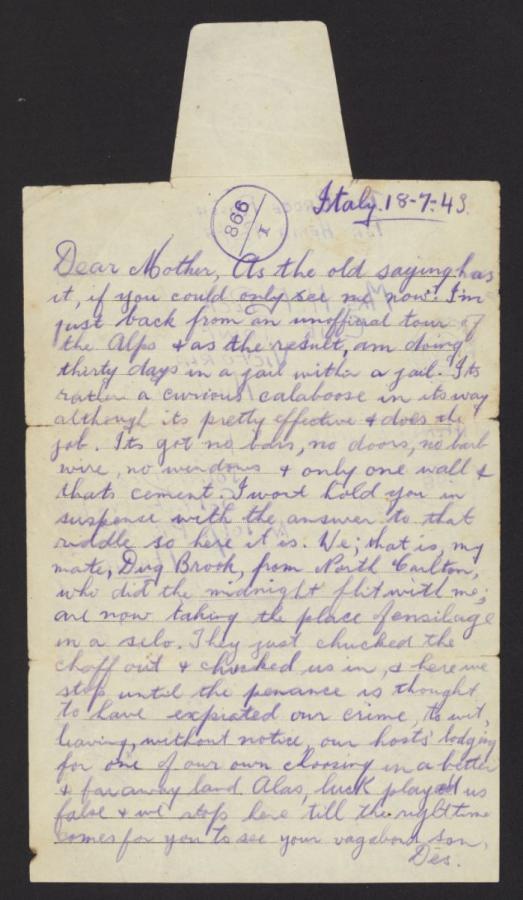 866
I
Italy. 18-7-43.
Dear Mother, As the old saying has
it, if you could only see me now! I'm
just back from an unofficial tour of
the Alps & as the result, am doing
thirty days in a jail within a jail. Its
rather a curious calaboose in its way
although its pretty effective & does the
job. Its got no bars, no doors, no barb
wire, no windows & only one wall &
thats cement. I wont hold you in
suspense with the answer to that
riddle so here it is. We; that is, my
mate, Dug Brook, from North Carlton,
who did the midnight flit with me;
are now taking the place of ensilage
in a silo. They just chucked the
chaff out & chucked us in, & here we
stop until the penance is thought
to have expiated our crime, to wit,
leaving, without notice, our hosts' lodging
for one of our own choosing in a better
& faraway land. Alas, luck played us
false & we stop here till the right time
comes for you to see your vagabond son,
Des.